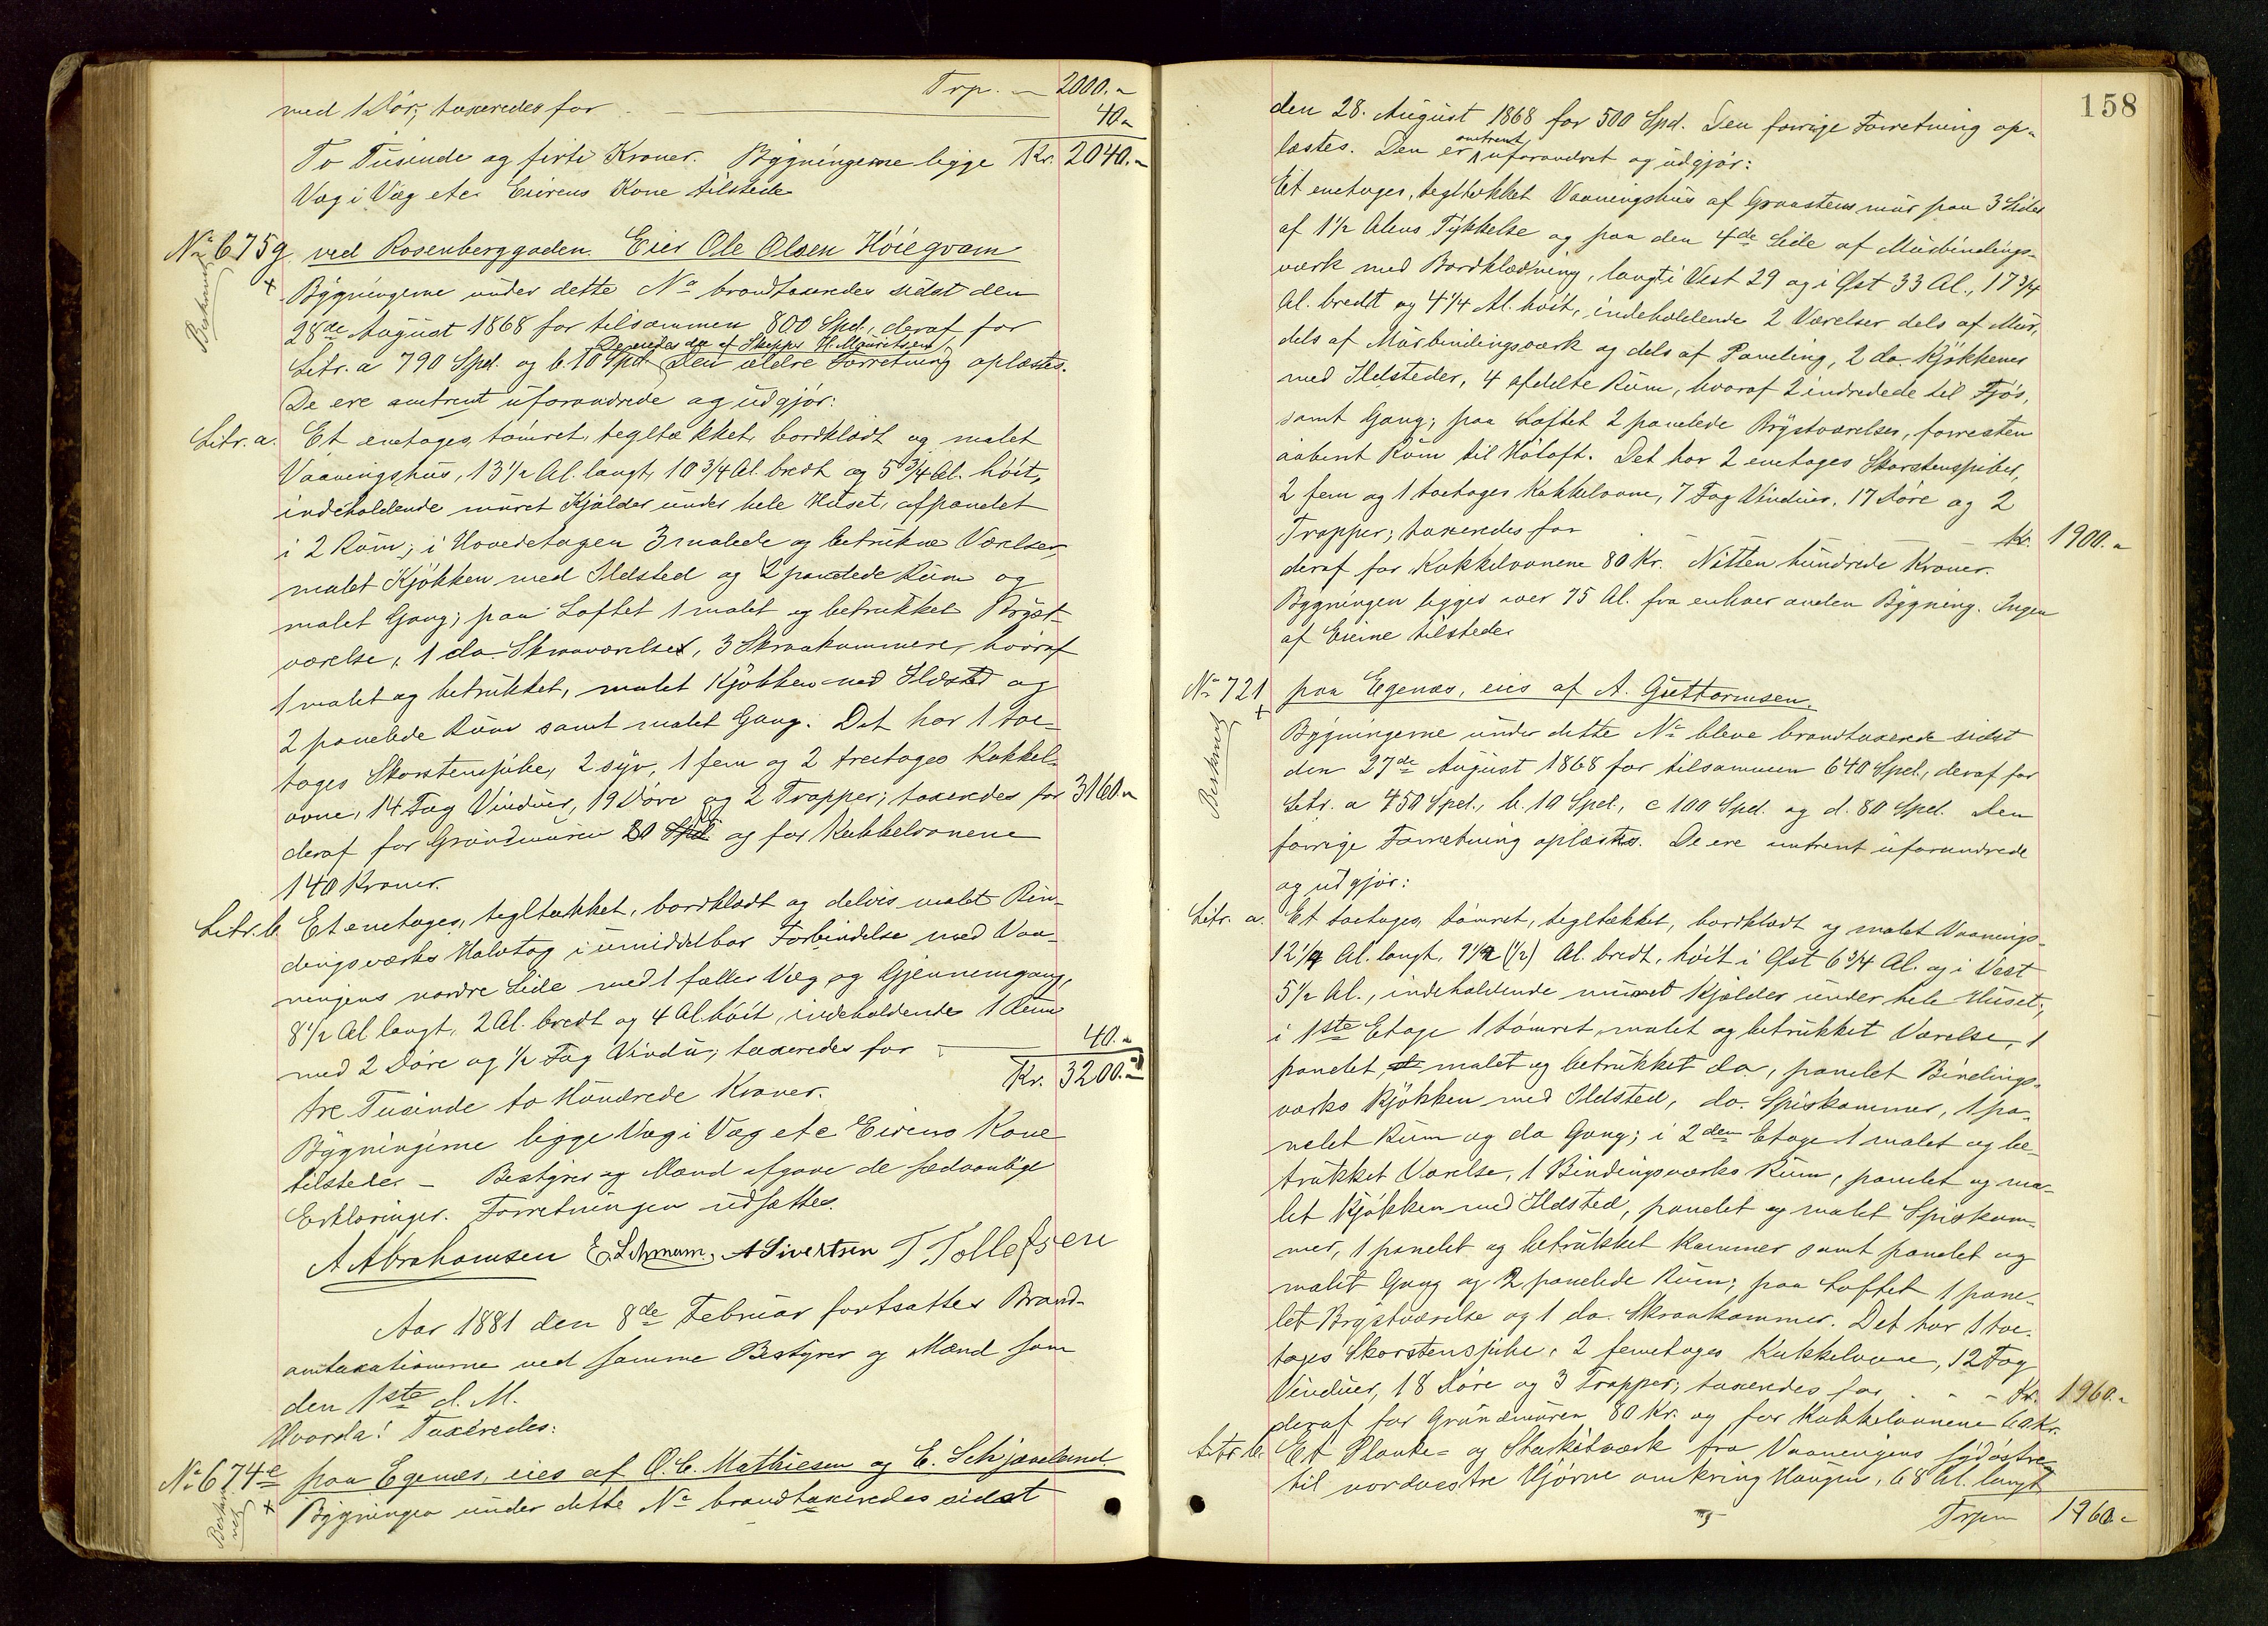 Trp. — 2000.„
med 1 Dør; taxeredes for — 40„
To Tusinde og firti Kroner. Bygningerne ligge Kr. 2040.„
Væg i Væg etc. Eierens Kone tilstede
No 675g ved Rosenberggaden. Eier Ole Olsen Høiegvam
Beskrevet
Bygningerne under dette No brandtaxeredes sidst den
28de August 1868 for tilsammen 800 Spd., deraf for
De eiedes da af Skipper H. Mauritsen
Litr. a 790 Spd. og b. 10 Spd. Den ældre Forretning oplæstes.
De ere omtrent uforandrede og udgjør:
Litr. a. Et enetages, tømret, tegltækket, bordklædt og malet
Vaaningshus, 13 1/2 Al. langt, 10 3/4 Al. bredt og 5 3/4 Al. høit,
indeholdende muret Kjælder under hele Huset, afpanelet
i 2 Rum; i Hovedetagen 3 malede og betrukne Værelser,
malet Kjøkken med Ildsted og 2 panelede Rum og
malet Gang; paa Loftet 1 malet og betrukket Bryst-
værelse, 1 do. Skraaværelse, 3 Skraakammere, hvoraf
1 malet og betrukket, malet Kjøkken med Ildsted og
2 panelede Rum samt malet Gang. Det har 1 toe-
tages Skorstenspibe, 2 syv, 1 fem og 2 treetages Kakkel-
ovne, 14 Fag Vinduer, 19 Døre og 2 Trapper; taxeredes for 3160.„
deraf for Grundmuren 80 Spd. og for Kakkelovnene
140 Kroner.
Litr. b. Et enetages, tegltækket, bordklædt og delvis malet Bin-
dingsværks Halvtag i umiddelbar Forbindelse med Vaa-
ningens nordre Side med 1 fælles Væg og Gjennemgang,
8 1/2 Al. langt, 2 Al. bredt og 4 Al. høit, indeholdende 1 Rum
med 2 Døre og 1/2 Fag Vindu; taxeredes for — 40.„
tre Tusinde to Hundrede Kroner. Kr. 3200.„
Bygningerne ligge Væg i Væg etc Eierens Kone
tilstede. — Bestyrer og Mænd afgave de sædvanlige
Erklæringer. Forretningen udsattes.
A Abrahamsen E. Lehmann. A Sivertsen T. Tollefsen
Aar 1881 den 8de Februar fortsattes Brand-
omtaxationerne ved samme Bestyrer og Mænd som
den 1ste d. M.
Hvorda! Taxeredes:
No 674e paa Egenæs, eies af O. C. Mathiesen og E. Schjævelund
Beskrevet
Bygningen under dette No brandtaxeredes sidst
158
den 28. August 1868 for 500 Spd. Den forrige Forretning op-
læstes. Den er omtrent uforandret og udgjør:
Et enetages, tegltækket Vaaningshus af Graastensmur paa 3 Sider
af 1 1/2 Alens Tykkelse og paa den 4de Side af Murbindings-
værk med Bordklædning, langt i Vest 29 og i Øst 33 Al., 17 3/4
Al. bredt og 4 1/4 Al. høit, indeholdende 2 Værelser dels af Mur,
dels af Murbindingsværk og dels af Paneling, 2 do. Kjøkkener
med Ildsteder, 4 afdelte Rum, hvoraf 2 indredede til Fjøs,
samt Gang; paa Loftet 2 panelede Brystværelser, forresten
aabent Rum til Høloft. Det har 2 enetages Skorstenspiber,
2 fem og 1 toetages Kakkelovne, 7 Fag Vinduer, 17 Døre og 2
Trapper; taxeredes for — Kr. 1900.„
deraf for Kakkelovnene 80 Kr. Nitten hundrede Kroner.
Bygningen ligges over 75 Al. fra enhver anden Bygning. Ingen
af Eierne tilstede.
No 721 paa Egenæs, eies af A. Guttormsen.
Beskrevet
Bygningerne under dette No bleve brandtaxerede sidst
den 27de August 1868 for tilsammen 640 Spd., deraf for
Litr. a 450 Spd., b. 10 Spd., c 100 Spd. og d. 80 Spd. Den
forrige Forretning oplæstes. De ere omtrent uforandrede
og udgjør:
Litr. a. Et toetages, tømret, tegltækket, bordklædt og malet Vaanings-
12 1/4 Al. langt, 9 1/2 (1/2) Al. bredt, høit i Øst 6 3/4 Al. og i Vest
5 1/2 Al., indeholdende muret Kjælder under hele Huset;
i 1ste Etage 1 tømret, malet og betrukket Værelse, 1
panelet, malet og betrukket do., panelet Bindings-
værks Kjøkken med Ildsted, do. Spiskammer, 1 pa-
nelet Rum og do Gang; i 2den Etage 1 malet og be-
trukket Værelse, 1 Bindingsværks Rum, panelet og ma-
let Kjøkken med Ildsted, panelet og malet Spiskam-
mer, 1 panelet og betrukket Kammer samt panelet og
malet Gang og 2 panelede Rum; paa Loftet 1 pane-
let Brystværelse og 1 do. Skraakammer. Det har 1 toe-
tages Skorstenspibe, 2 femetages Kakkelovne, 12 Fag
Vinduer, 18 Døre og 3 Trapper; taxeredes for - - - Kr. 1960.„
deraf for Grundmuren 80 Kr. og for Kakkelovnene 60 Kr.
Litr. b. Et Planke- og Stakitværk fra Vaaningens sydøstre
til nordvestre Hjørne omkring Haugen, 68 Al. langt
Trp. 1960.„